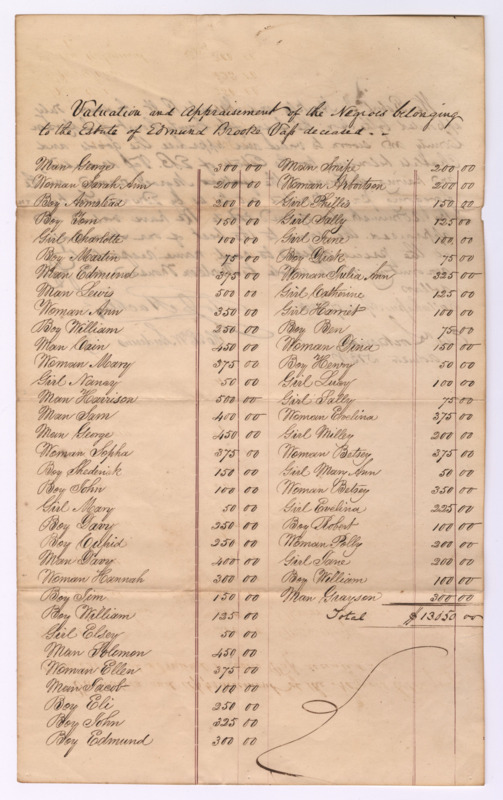 Valuation and Appraisement of the Negroes belonging
to the Estate of Edmund Brooke Vass deceased. -
Man George 300 00
Woman Sarah Ann 200 00
Boy Armstead 200 00
Boy Tom 150 00
Girl Charlotte 100 00
Boy Martin 75 00
Man Edmund 375 00
Man Lewis 500 00
Woman Ann 350 00
Boy William 250 00
Man Cain 450 00
Woman Mary 375 00
Girl Nancy 50 00
Man Harrison 500 00
Man Sam 400 00
Man George 450 00
Woman Sopha 375 00
Boy Shederick 150 00
Boy John 100 00
Girl Mary 50 00
Boy Davy 250 00
Boy Cupid 250 00
Man Davy 400 00
Woman Hannah 300 00
Boy Jim 150 00
Boy William 125 00
Girl Elsey 50 00
Man Solomon 450 00
Woman Ellen 375 00
Man Jacob 100 00
Boy Eli 250 00
Boy John 325 00
Boy Edmund 300 00
Man Snipe 200 00
Woman 200 00
Girl Phillis 150 00
Girl Sally 125 00
Girl Jene 100 00
Boy Dick 75 00
Woman Julia Ann 325 00
Girl Catherine 125 00
Girl Harriet 100 00
Boy Ben 75 00
Woman 150 00
Boy Henry 50 00
Girl Lucy 100 00
Girl Sally 75 00
Woman Evelina 375 00
Girl Milley 200 00
Woman Betsey 375 00
Girl Mary Ann 50 00
Woman Betsey 350 00
Girl Evelina 225 00
Boy Robert 100 00
Woman Polly 200 00
Girl Jane 200 00
Boy William 100 00
Man Grayson 300 00
Total $ 13050 00